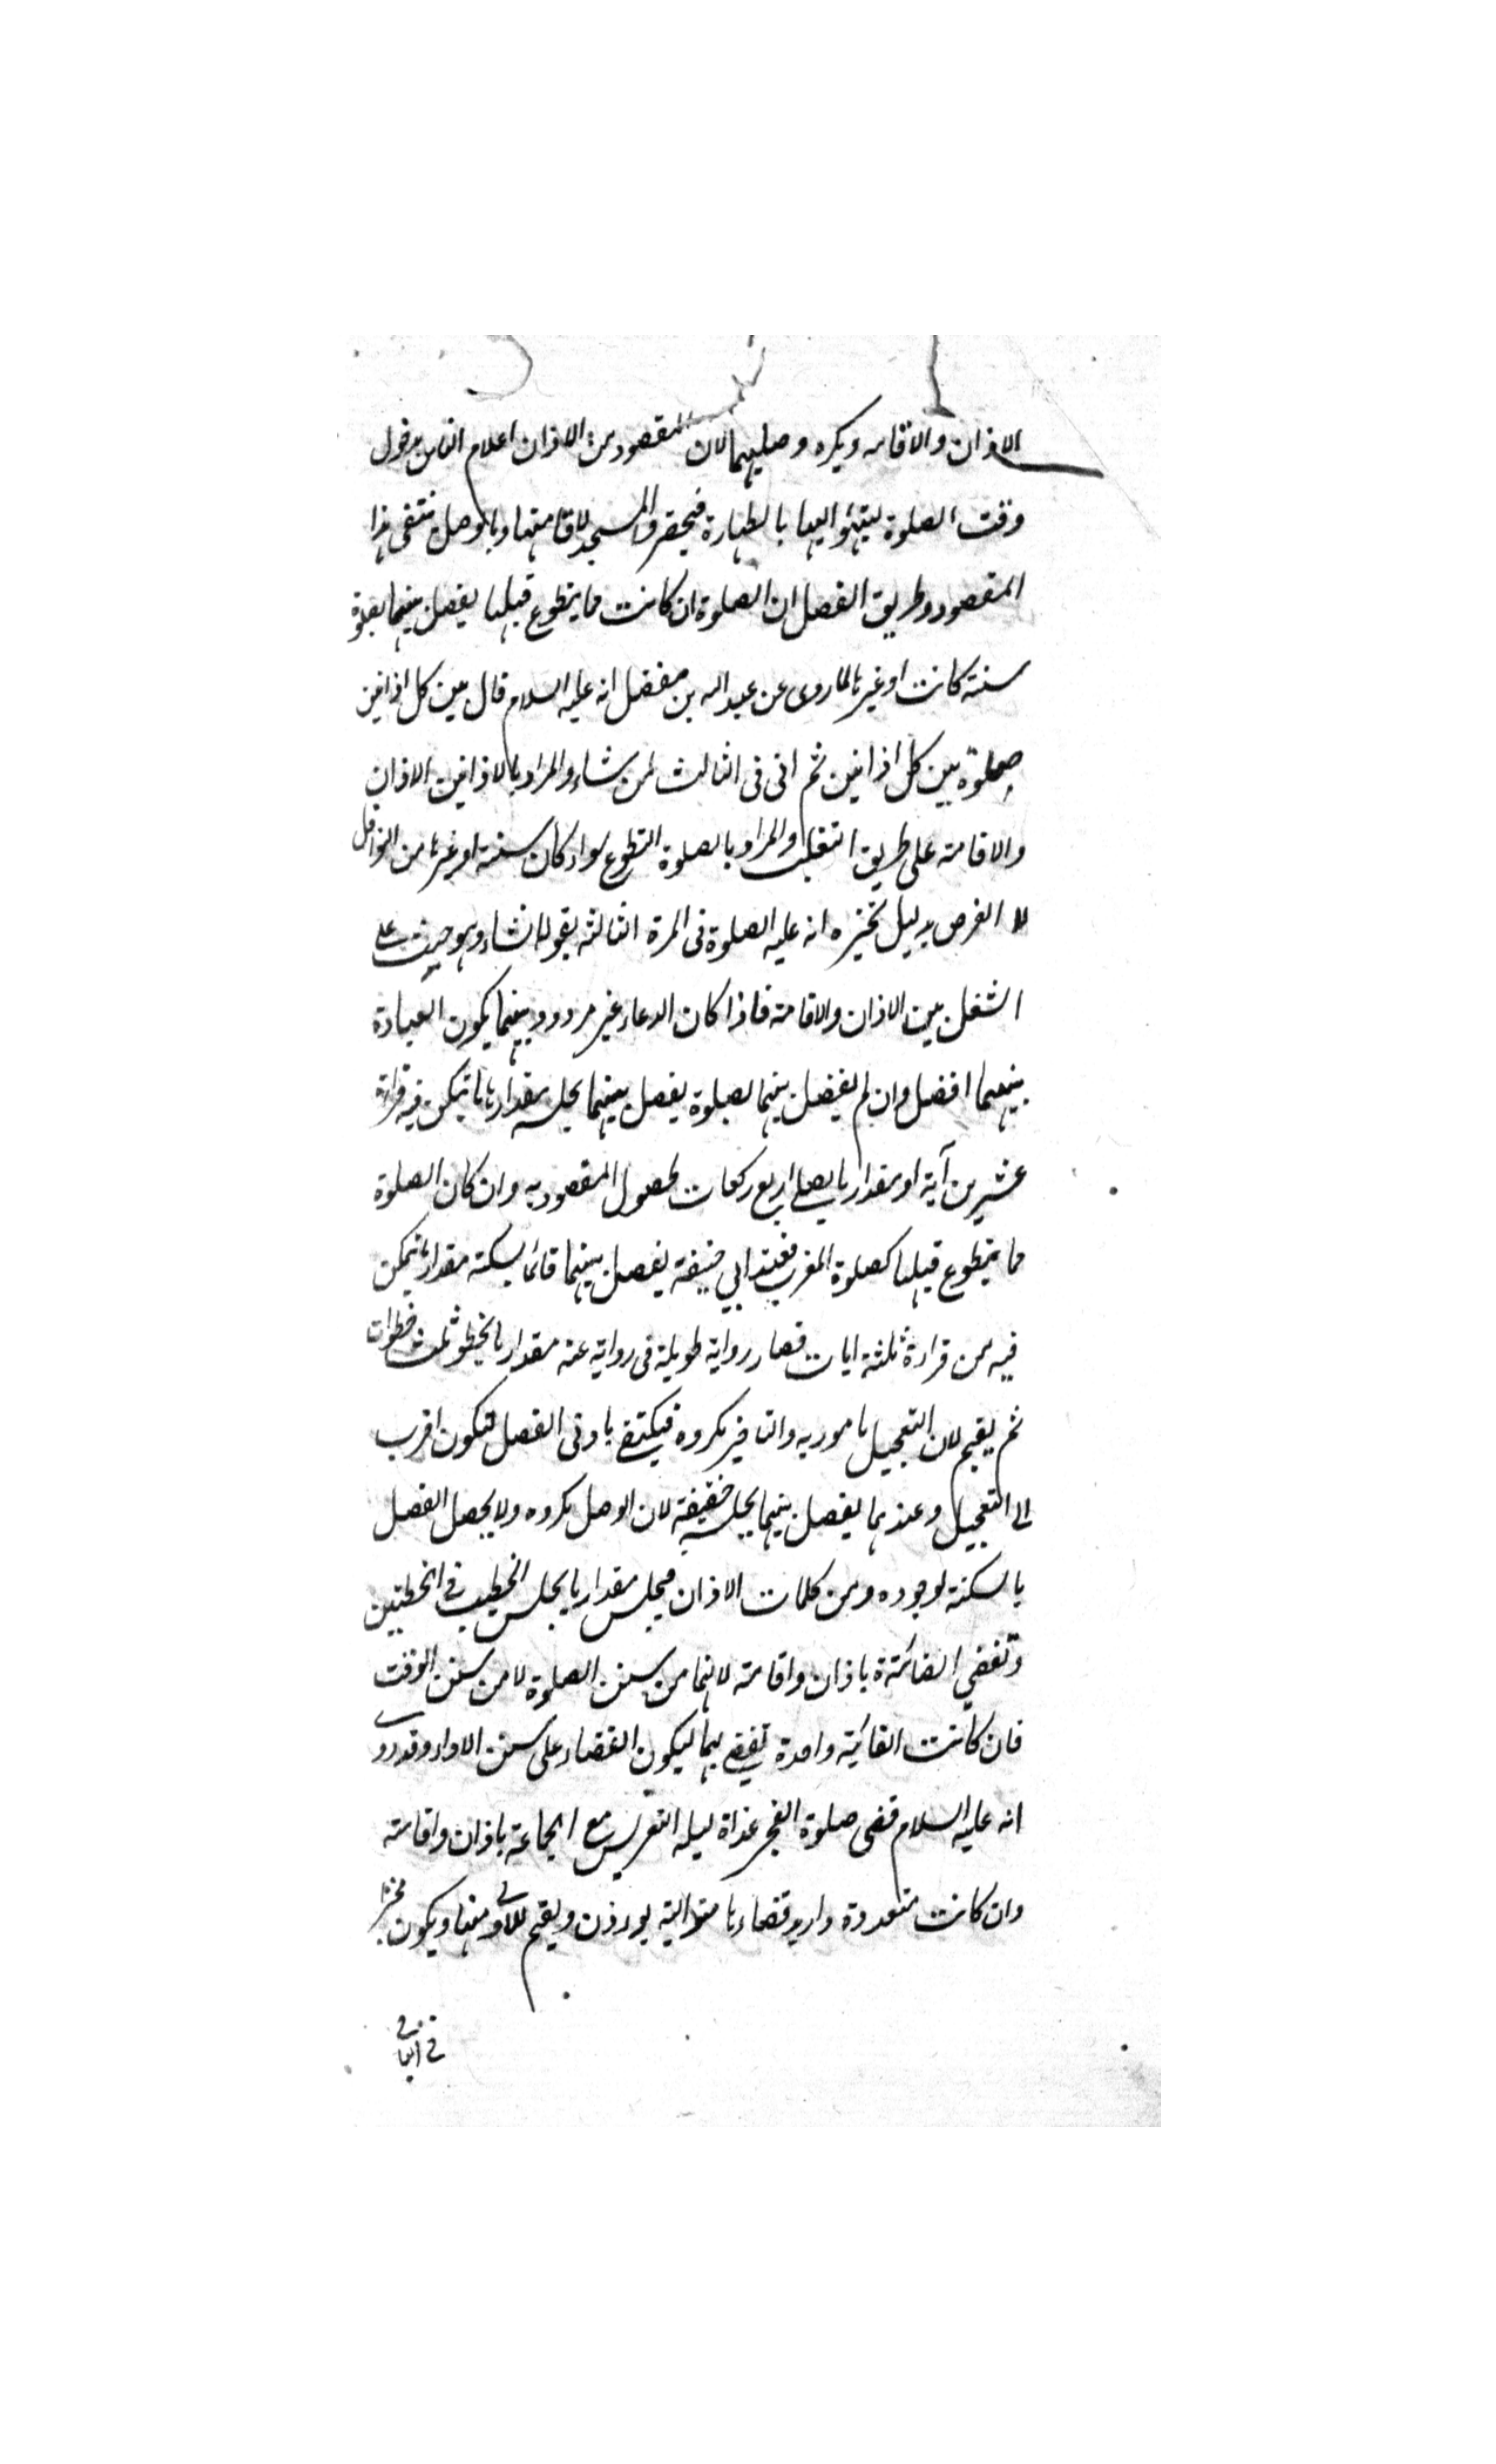 الاذان والاقامه ويكره وصلهما لان المقصود من الاذان اعلام الناس بدخول
وقت الصلوة ليتهيؤا اليها بالطهارة فيحضر والمسجد لاقامتها وبالوصل ينتفى هذا
المقصود وطريق الفصل ان الصلوة ان كانت مما يتطوع قبلها يفصل بينهما بصلوة
سنة كانت او غيرها لما روى عن عبد الله بن مغفل انه عليه السلام قال بين كل اذانين
صلوة بين كل اذانين ثم انى فى الثالث لمن شاء والمراد بالاذانين الاذان
والاقامة على طريق التغليب والمراد بالصلوة التطوع سواء كان سنة او غيرها من النوافل
لا الفرض بدليل تخيره انه عليه الصلوة فى المرة الثالثه بقوله لمن شاء وهو حيث على
الشغل بين الاذان والاقامة فاذا كان الدعاء غير مردود بينهما يكون العبادة
بينهما افضل وان لم يفصل بينهما بصلوة يفصل بينهما بجلسه مقدار ما يتمكن فيه قراءة
عشرين آية او مقدار ما يصلى اربع ركعات لحصول المقصود به وان كان الصلوة
مما يتطوع قبلها كصلوة المغرب فعند ابي حنيفة يفصل بينهما قائما بسكتة مقدار ما يتمكن
فيه من قراءة ثلثة ايات قصار رواية طويلة فى رواية عنه مقدار ما يخطو ثلث خطوات
ثم يقيم لان التعجيل مامور به والتاخير مكروه فيكتفى بادنى الفصل لتكون اقرب
الى التعجيل وعندهما يفصل بينهما بجلسة خفيفة لان الوصل مكروه ولا يحصل الفصل
بالسكتة لوجوده ومن كلمات الاذان فيجلس مقدار ما يجلس الخطيب فى الخطبتين
وتقضي الفائتة باذان واقامة لانهما من سنن الصلوة لا من سنن الوقت
فان كانت الفائتة واحدة تقضى بهما ليكون القضاء على سنن الاداء وقد روى
انه عليه السلام قضى صلوة الفجر غداة ليلة التعريس مع الجماعة باذان واقامة
وان كانت متعددة واريد قضاءها متوالية يؤذن ويقيم للاولى منها ويكون مخيرا
فى الباقى